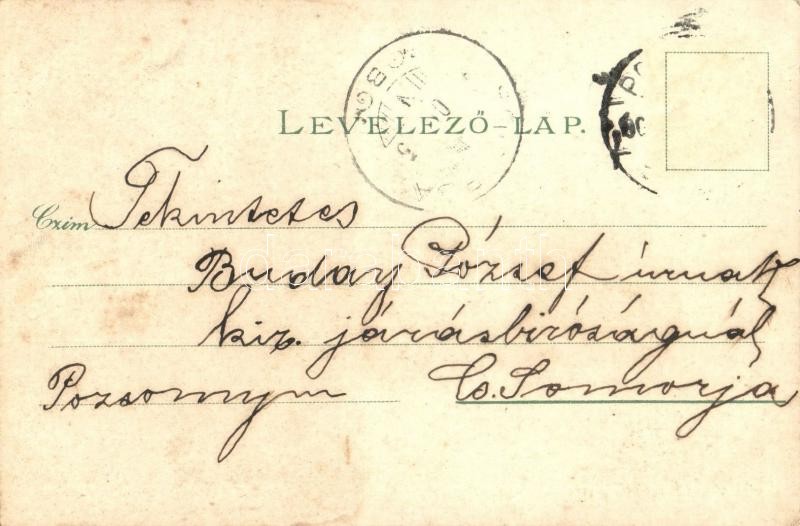 LEVELEZŐ-LAP.
Czím Tekintetes
Buday József úrnak
kir. járásbiróságnál
Pozsonym Cs. Somorja